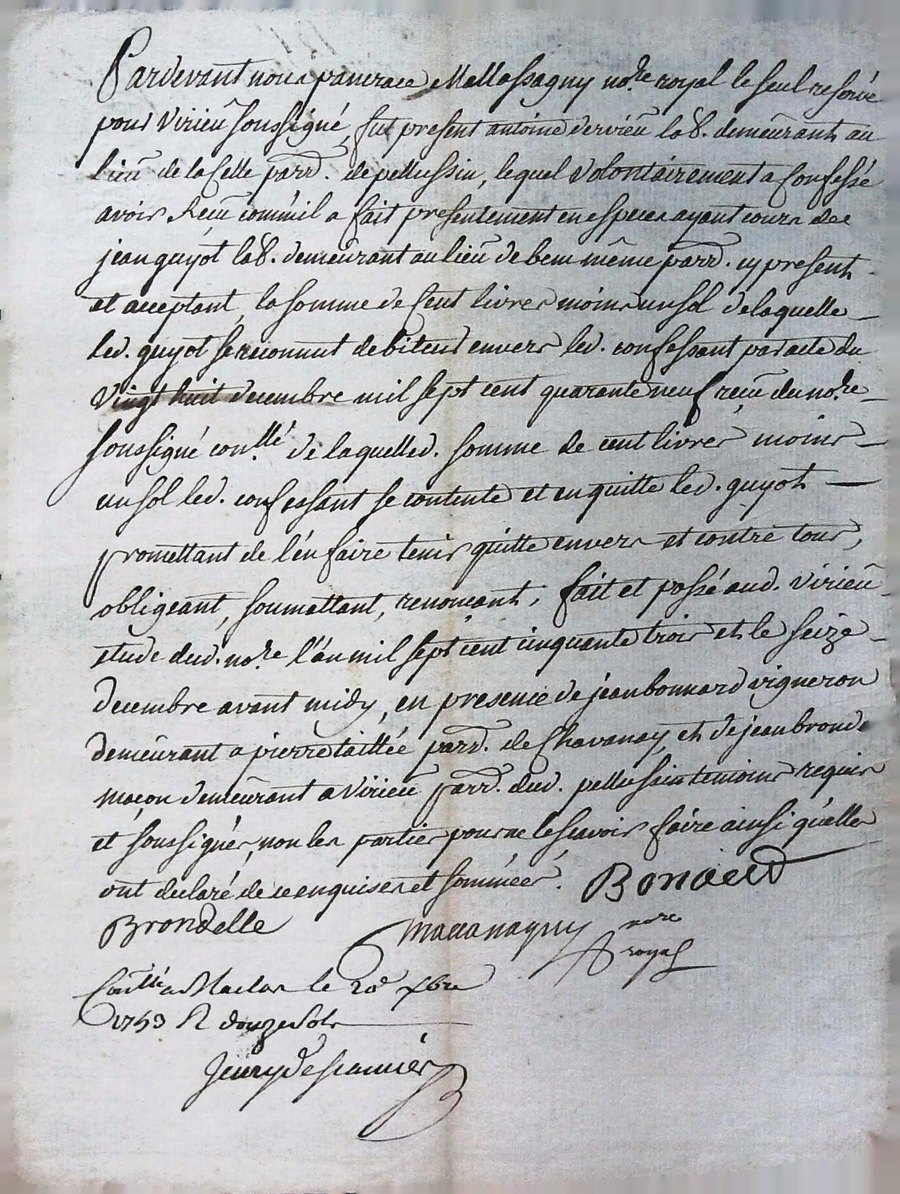 Pardevant nous pancrace Mallassagny no.re royal le seul reservé
pour Virieu soussigné, fut present antoine dervieu lab. demeurant au
lieu de la Celle parr. de pellussin, lequel volontairement a Confessé
avoir Reçu comme il a fait presentement en especes ayant cours de
jean guyot lab. demeurant au lieu de bem même parr. cy present
et acceptant, la somme de Cent livres moins un sol de laquelle
led. guyot se reconnut debiteur envers led. confessant par acte du
vingt huit decembre mil sept cent quarante neuf reçu du no.re
soussigné con.llé de laquelled. somme de cent livres moins
un sol led. confessant se contente et en quitte led. guyot
promettant de l'en faire tenir quitte envers et contre tous,
obligeant, soumettant, renoncant, fait et passé aud. virieu
etude dud. no.re l'an mil sept cent cinquante trois et le seize
decembre avant midy, en presence de jean bonnard vigneron
demeurant a pierre taillée parr. de Chavanay, et de jean bronde
maçon demeurant a Virieu parr. dud. pellussin temoins requis
et soussignés, non les parties pour ne le scavoir faire ainsi qu'elle
ont declaré de ce enquises et sommées.
Bonard
Brondelle
Mallassagny nore
royal
Con.llé a Maclas le 20e xbre
1753 R douze sols